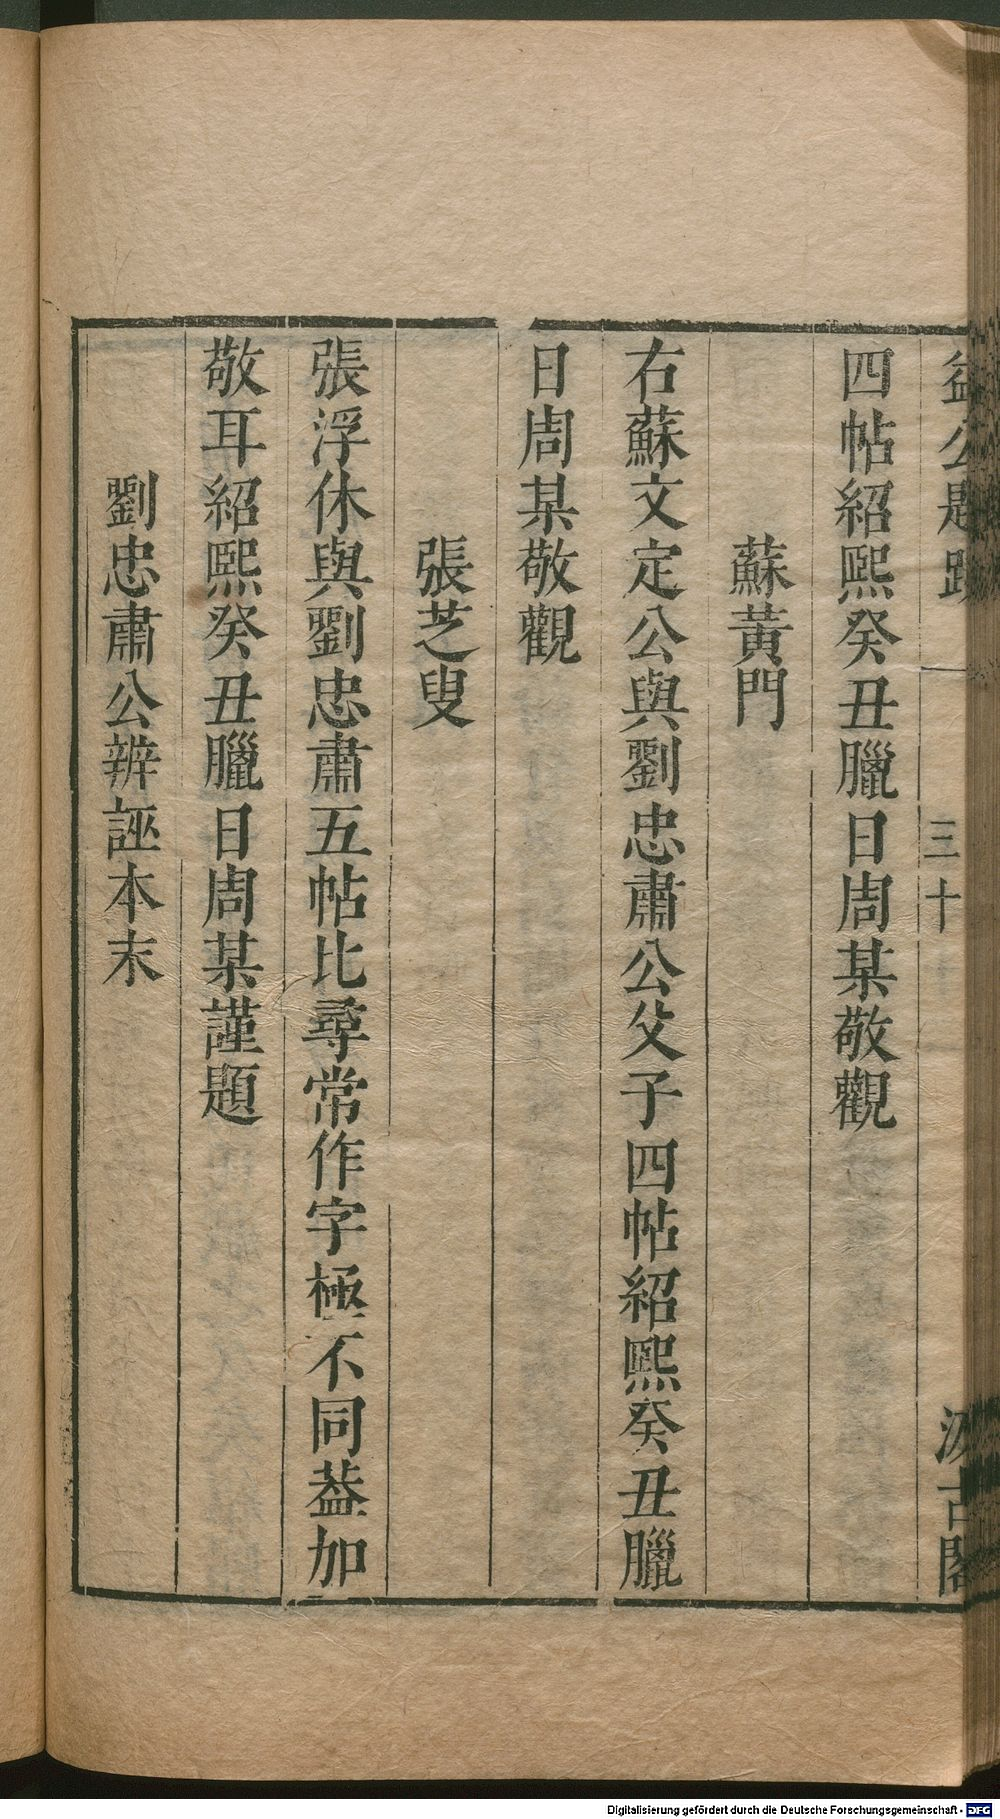 益公題跋 一 三十 汲古閣
四帖紹熙癸丑臘日周某敬觀
蘇黃門
右蘇文定公與劉忠肅公父子四帖紹熙癸丑臘
日周某敬觀
張芝叟
張浮休與劉忠肅五帖比尋常作字極不同葢加
敬耳紹熙癸丑臘日周某謹題
劉忠肅公辨誣本末
Digitalisierung gefördert durch die Deutsche Forschungsgemeinschaft - DFG